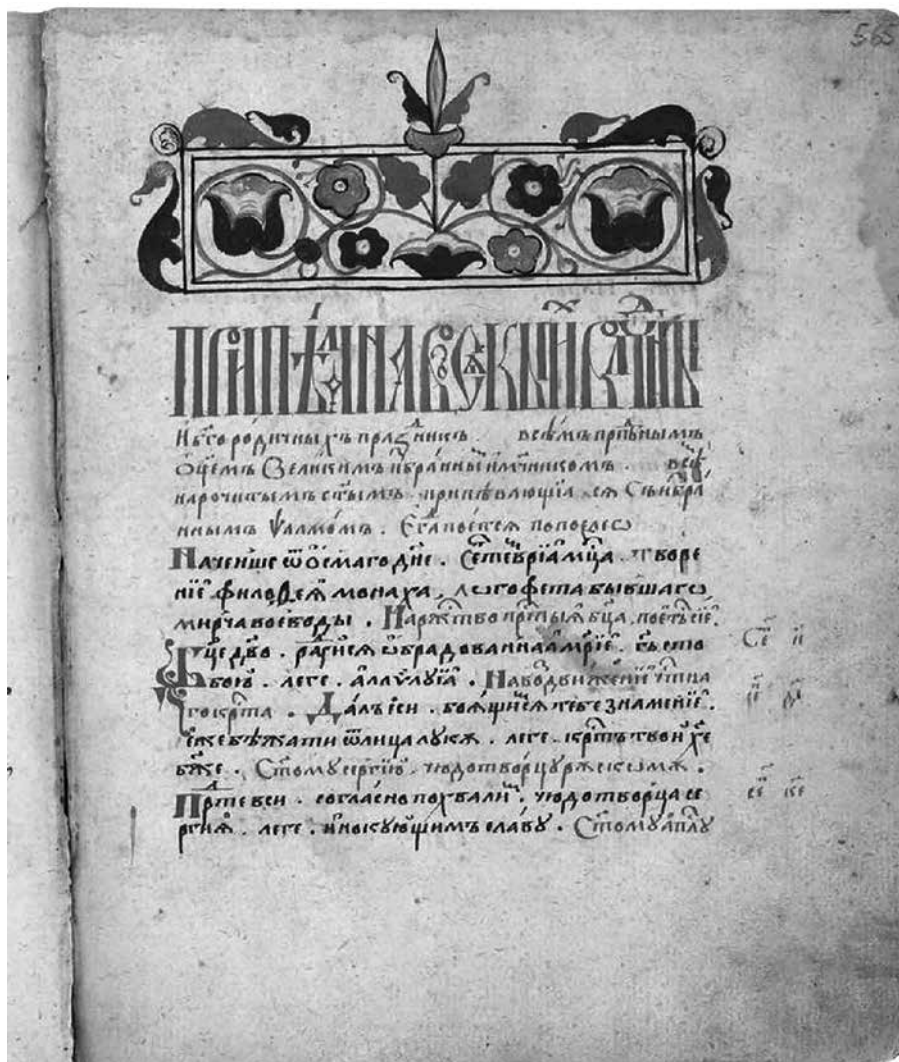 565
Припѣла на вс҃ѣкы г҃скиⷯ
и бг҃ородичныхъ праздникъ . всѣмъ прпⷣбнымъ
ѻ҃цемъ великимъ и избранныⷨ и мчⷩикомъ . и всѣⷨ
нарочитымъ ст҃ымъ . припѣвающїа ся съ избра
ннымъ ѱалмомъ . Егⷣа поется пополиелеѡ
Наченше ѿ ѻсмаго дн҃е . Септеврїа мц҃а . творе
нїе филоѳея монаха , логофета бывшагѡ
мирча воеводы . На ржⷭтво прⷭтыꙗ бц҃а , поетⷭѧ сїе .
Вл҃чце дв҃о . радⷹисѧ ѡбрадованнаа мр҃їе . гь҃ с то
бою . леге . аллилуїа . На въздвиженїе чⷭтна
го крⷭта . Далъ еси . боящимсѧ тебе знаменїе .
еже бѣжати ѿ лица лука . леге . крⷭтъ твой хе҃
бж҃е . Ст҃ому сергїю . чюдотворцу рⷣ скомꙋ .
Прїидѣте вси . согласно похвалиⷨ . чюдотворца се
ргиꙗ . леге . инокующимъ славу . Ст҃ому апⷭлу
Сеⷫ и҃
сеⷫ д҃ї
сеⷫ к҃е